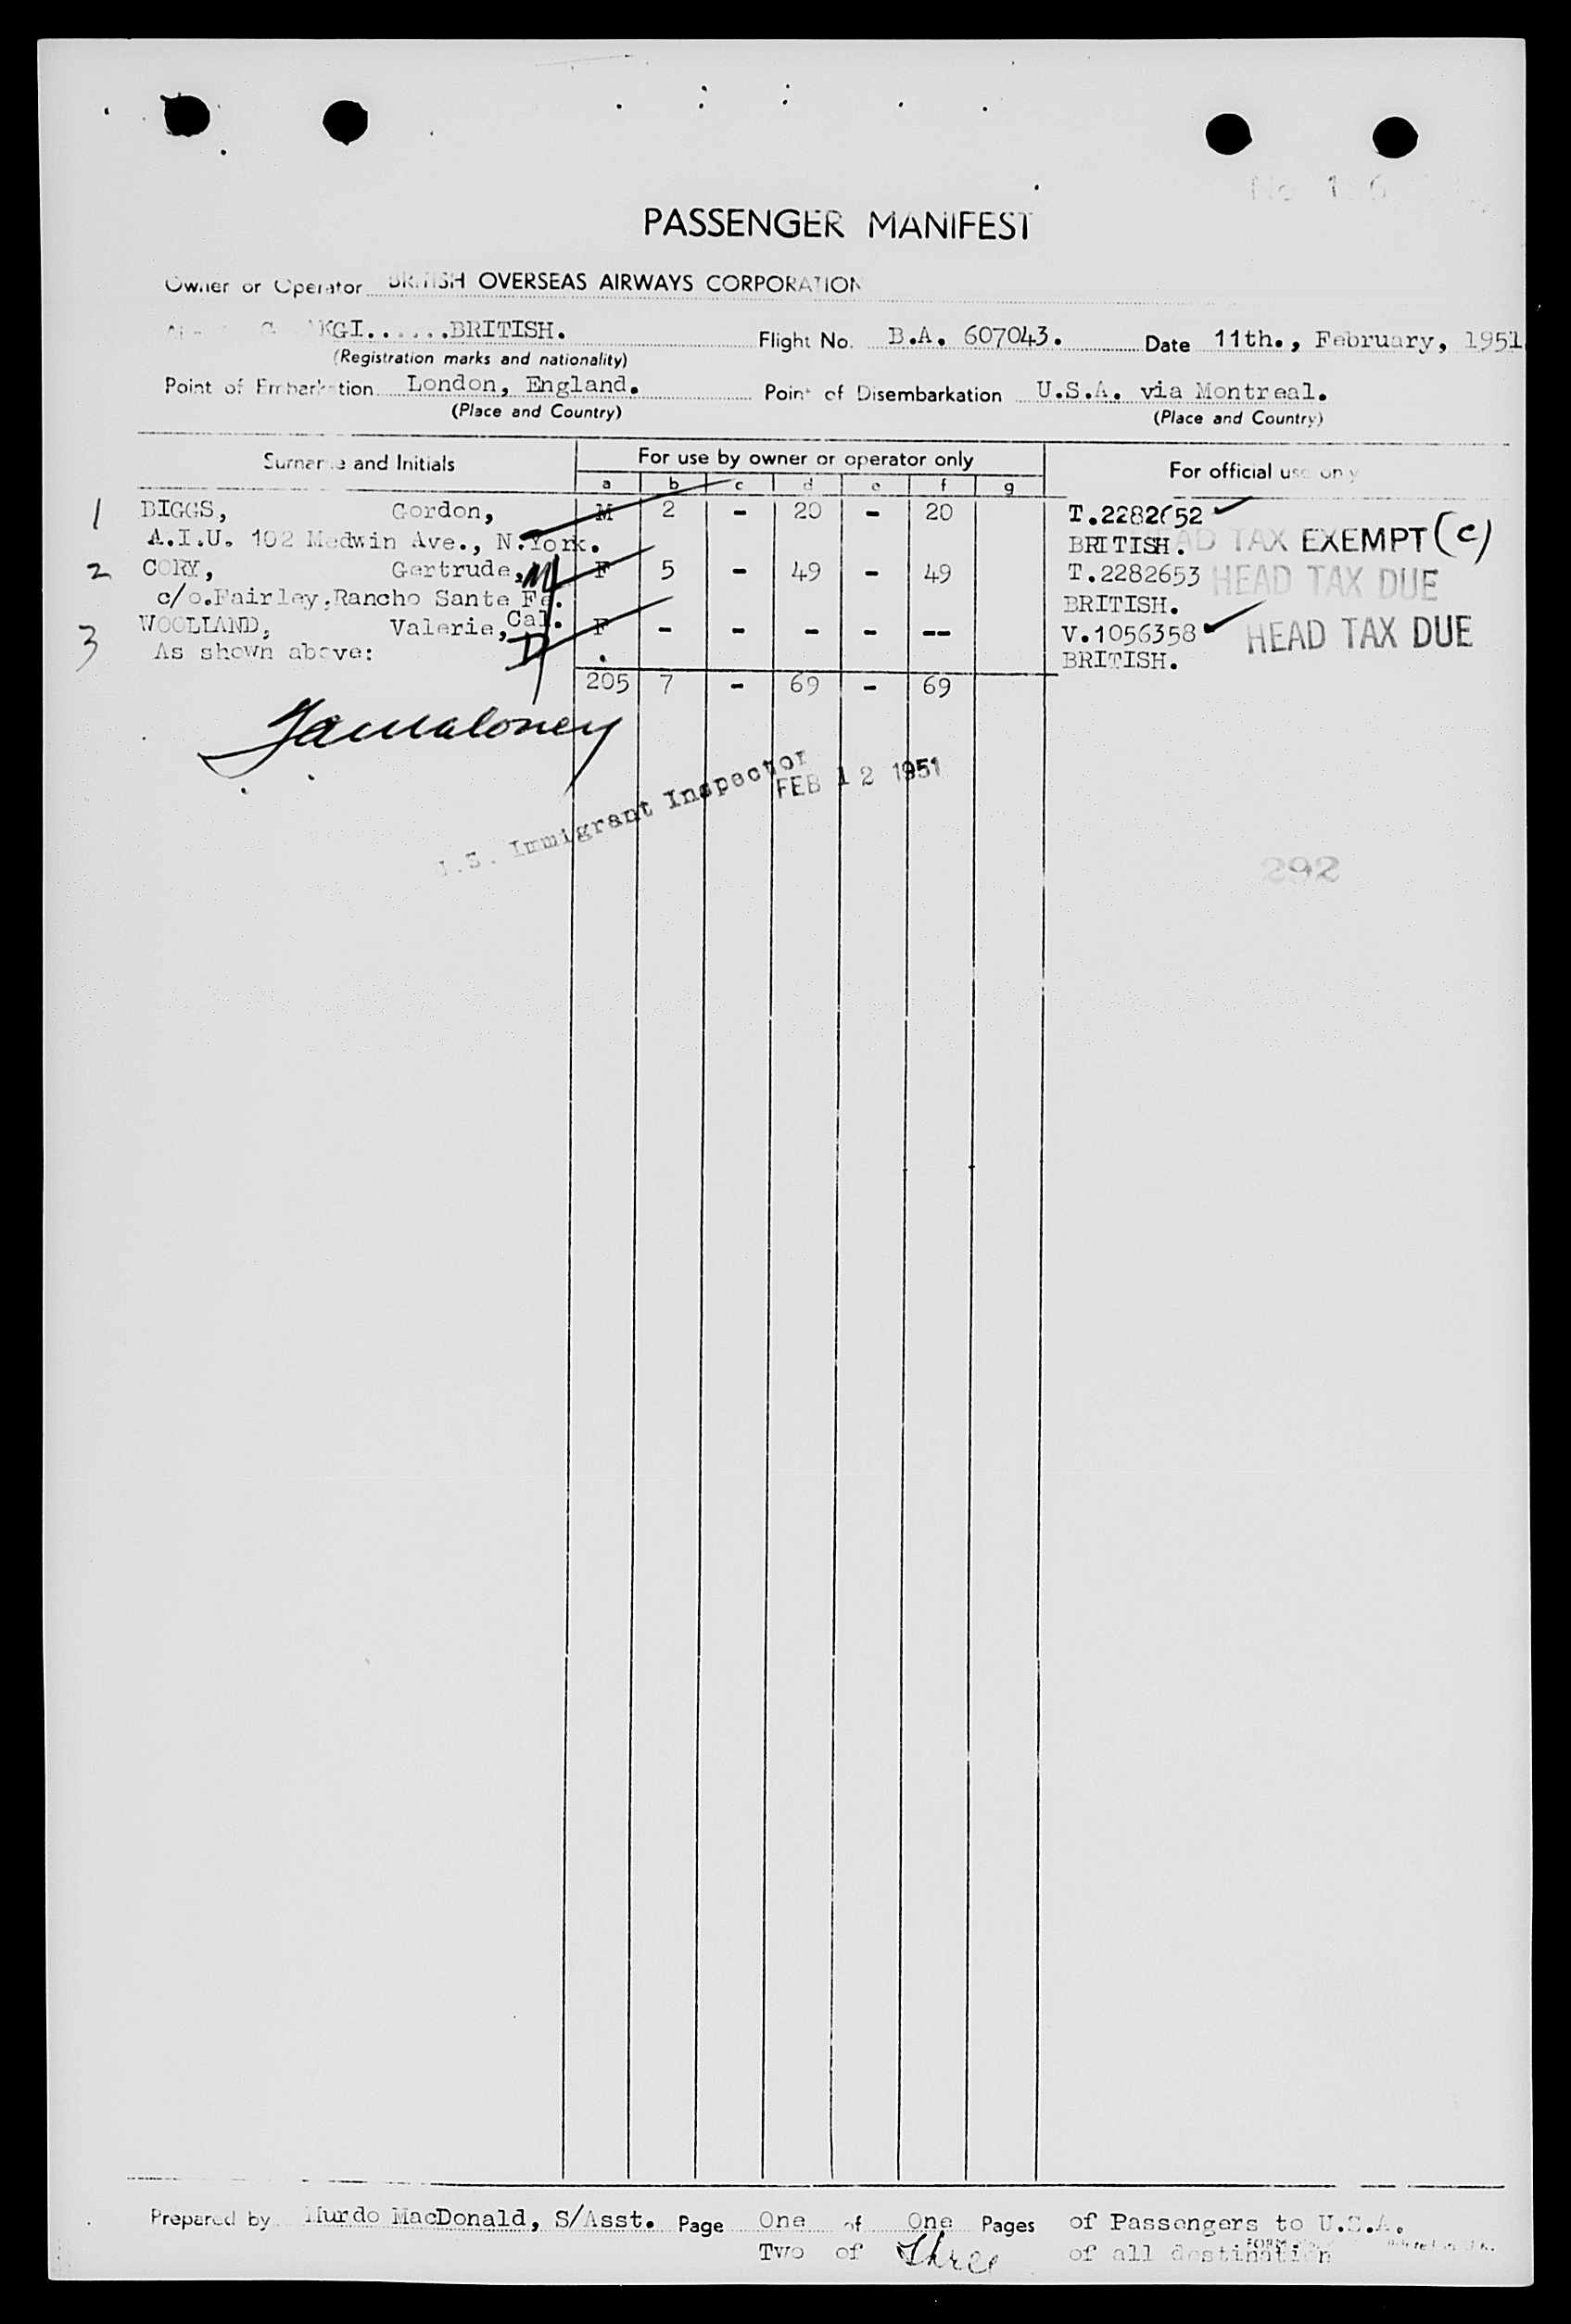 PASSENGER MANIFEST
Owner or Operator BRITISH OVERSEAS AIRWAYS CORPORATION
KGI......BRITISH. Flight No. B.A. 607043. Date 11th., February, 1951
(Registration marks and nationality)
Point of Embarkation London, England. Point of Disembarkation U.S.A. via Montreal.
(Place and Country) (Place and Country)
Surname and Initials For use by owner or operator only For official use only
a b c d e f g
1 BIGGS, Gordon, M 2 - 20 - 20 T.2282652
A.I.U. 102 Medwin Ave., N.York. BRITISH. HEAD TAX EXEMPT (C)
2 CORY, Gertrude, F 5 - 49 - 49 T.2282653 HEAD TAX DUE
c/o.Fairley,Rancho Sante Fe. BRITISH.
Cal.
3 WOOLLAND, Valerie, F - - - - -- V.1056358 HEAD TAX DUE
As shown above: BRITISH.
205 7 - 69 - 69
U.S. Immigrant Inspector
FEB 12 1951
292
Prepared by Murdo MacDonald, S/Asst. Page One of One Pages of Passengers to U.S.A.
Two of Three of all destination